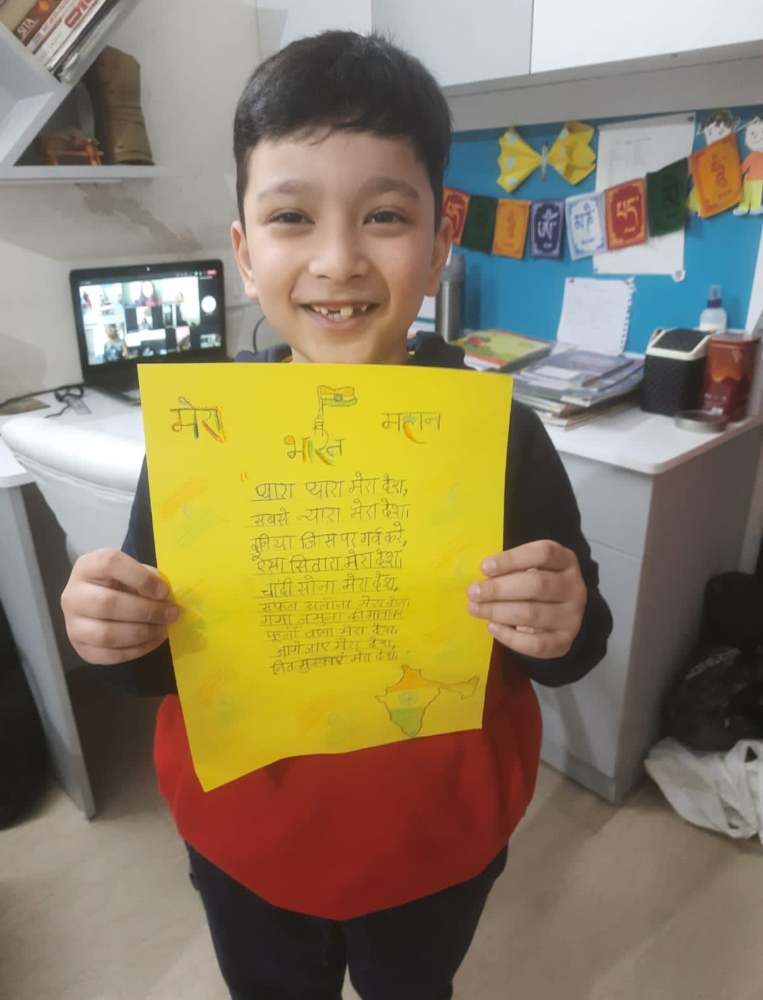 SITA
मेरा भारत महान
" प्यारा प्यारा मेरा देश,
सबसे न्यारा मेरा देश।
दुनिया जिस पर गर्व करे,
ऐसा सितारा मेरा देश।
चांदी सोना मेरा देश,
सफल सलोना मेरा देश।
गंगा जमुना की माला का
फूलों वाला मेरा देश।
आगे जाए मेरा देश,
नित मुस्काए मेरा देश। "